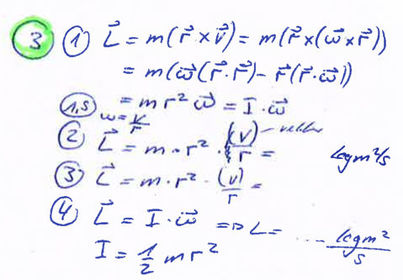 ③ ① L⃗ = m(r⃗ × v⃗) = m(r⃗ × (ω⃗ × r⃗))
= m(ω⃗(r⃗·r⃗) - r⃗(r⃗·ω⃗))
1,5 = m r² ω⃗ = I · ω⃗
ω = v/r
② L⃗ = m · r² · (v)/r = kgm²/s
③ L⃗ = m · r² · (v)/r =
④ L⃗ = I · ω⃗ => L = ... kgm²/s
I = 1/2 m r²